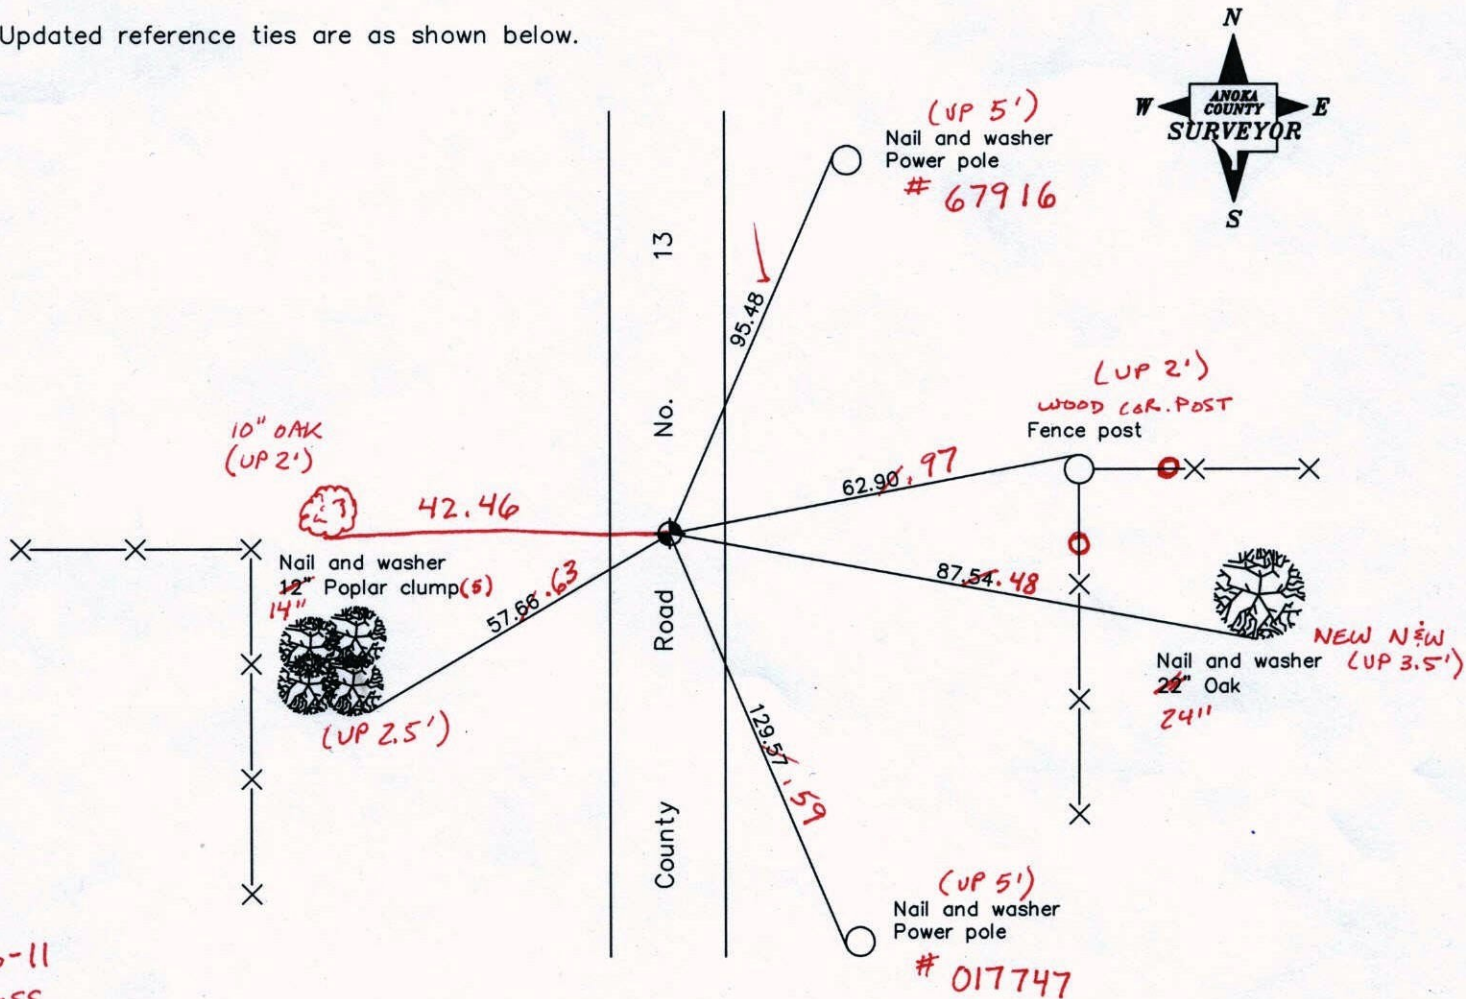 Updated reference ties are as shown below.
N
W
ANOKA
COUNTY
E
SURVEYOR
S
(UP 5')
Nail and washer
Power pole
# 67916
County Road No. 13
95.48
(UP 2')
WOOD COR. POST
Fence post
10" OAK
(UP 2')
42.46
62.90 .97
Nail and washer
12" Poplar clump(5)
14"
57.66 .63
87.54 .48
NEW N&W
(UP 3.5')
Nail and washer
22" Oak
24"
(UP 2.5')
129.57 .59
(UP 5')
Nail and washer
Power pole
# 017747